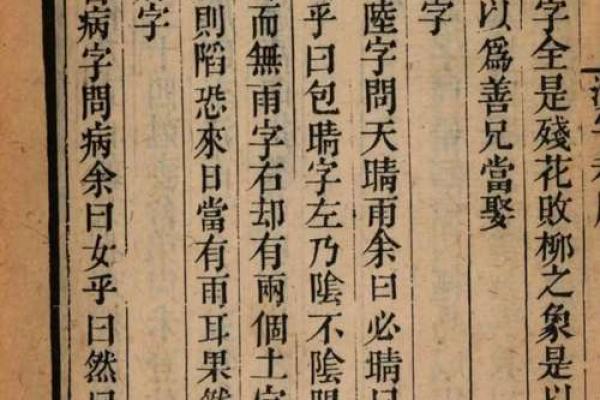 字全是殘花敗柳之象是以
以爲善兄當娶
字
陸字問天晴雨余曰必晴曰
乎曰包晴字左乃陰不陰陽
而無雨字右却有兩個土字
則陷恐來日當有雨耳果然
字
病字問病余曰女乎曰然曰